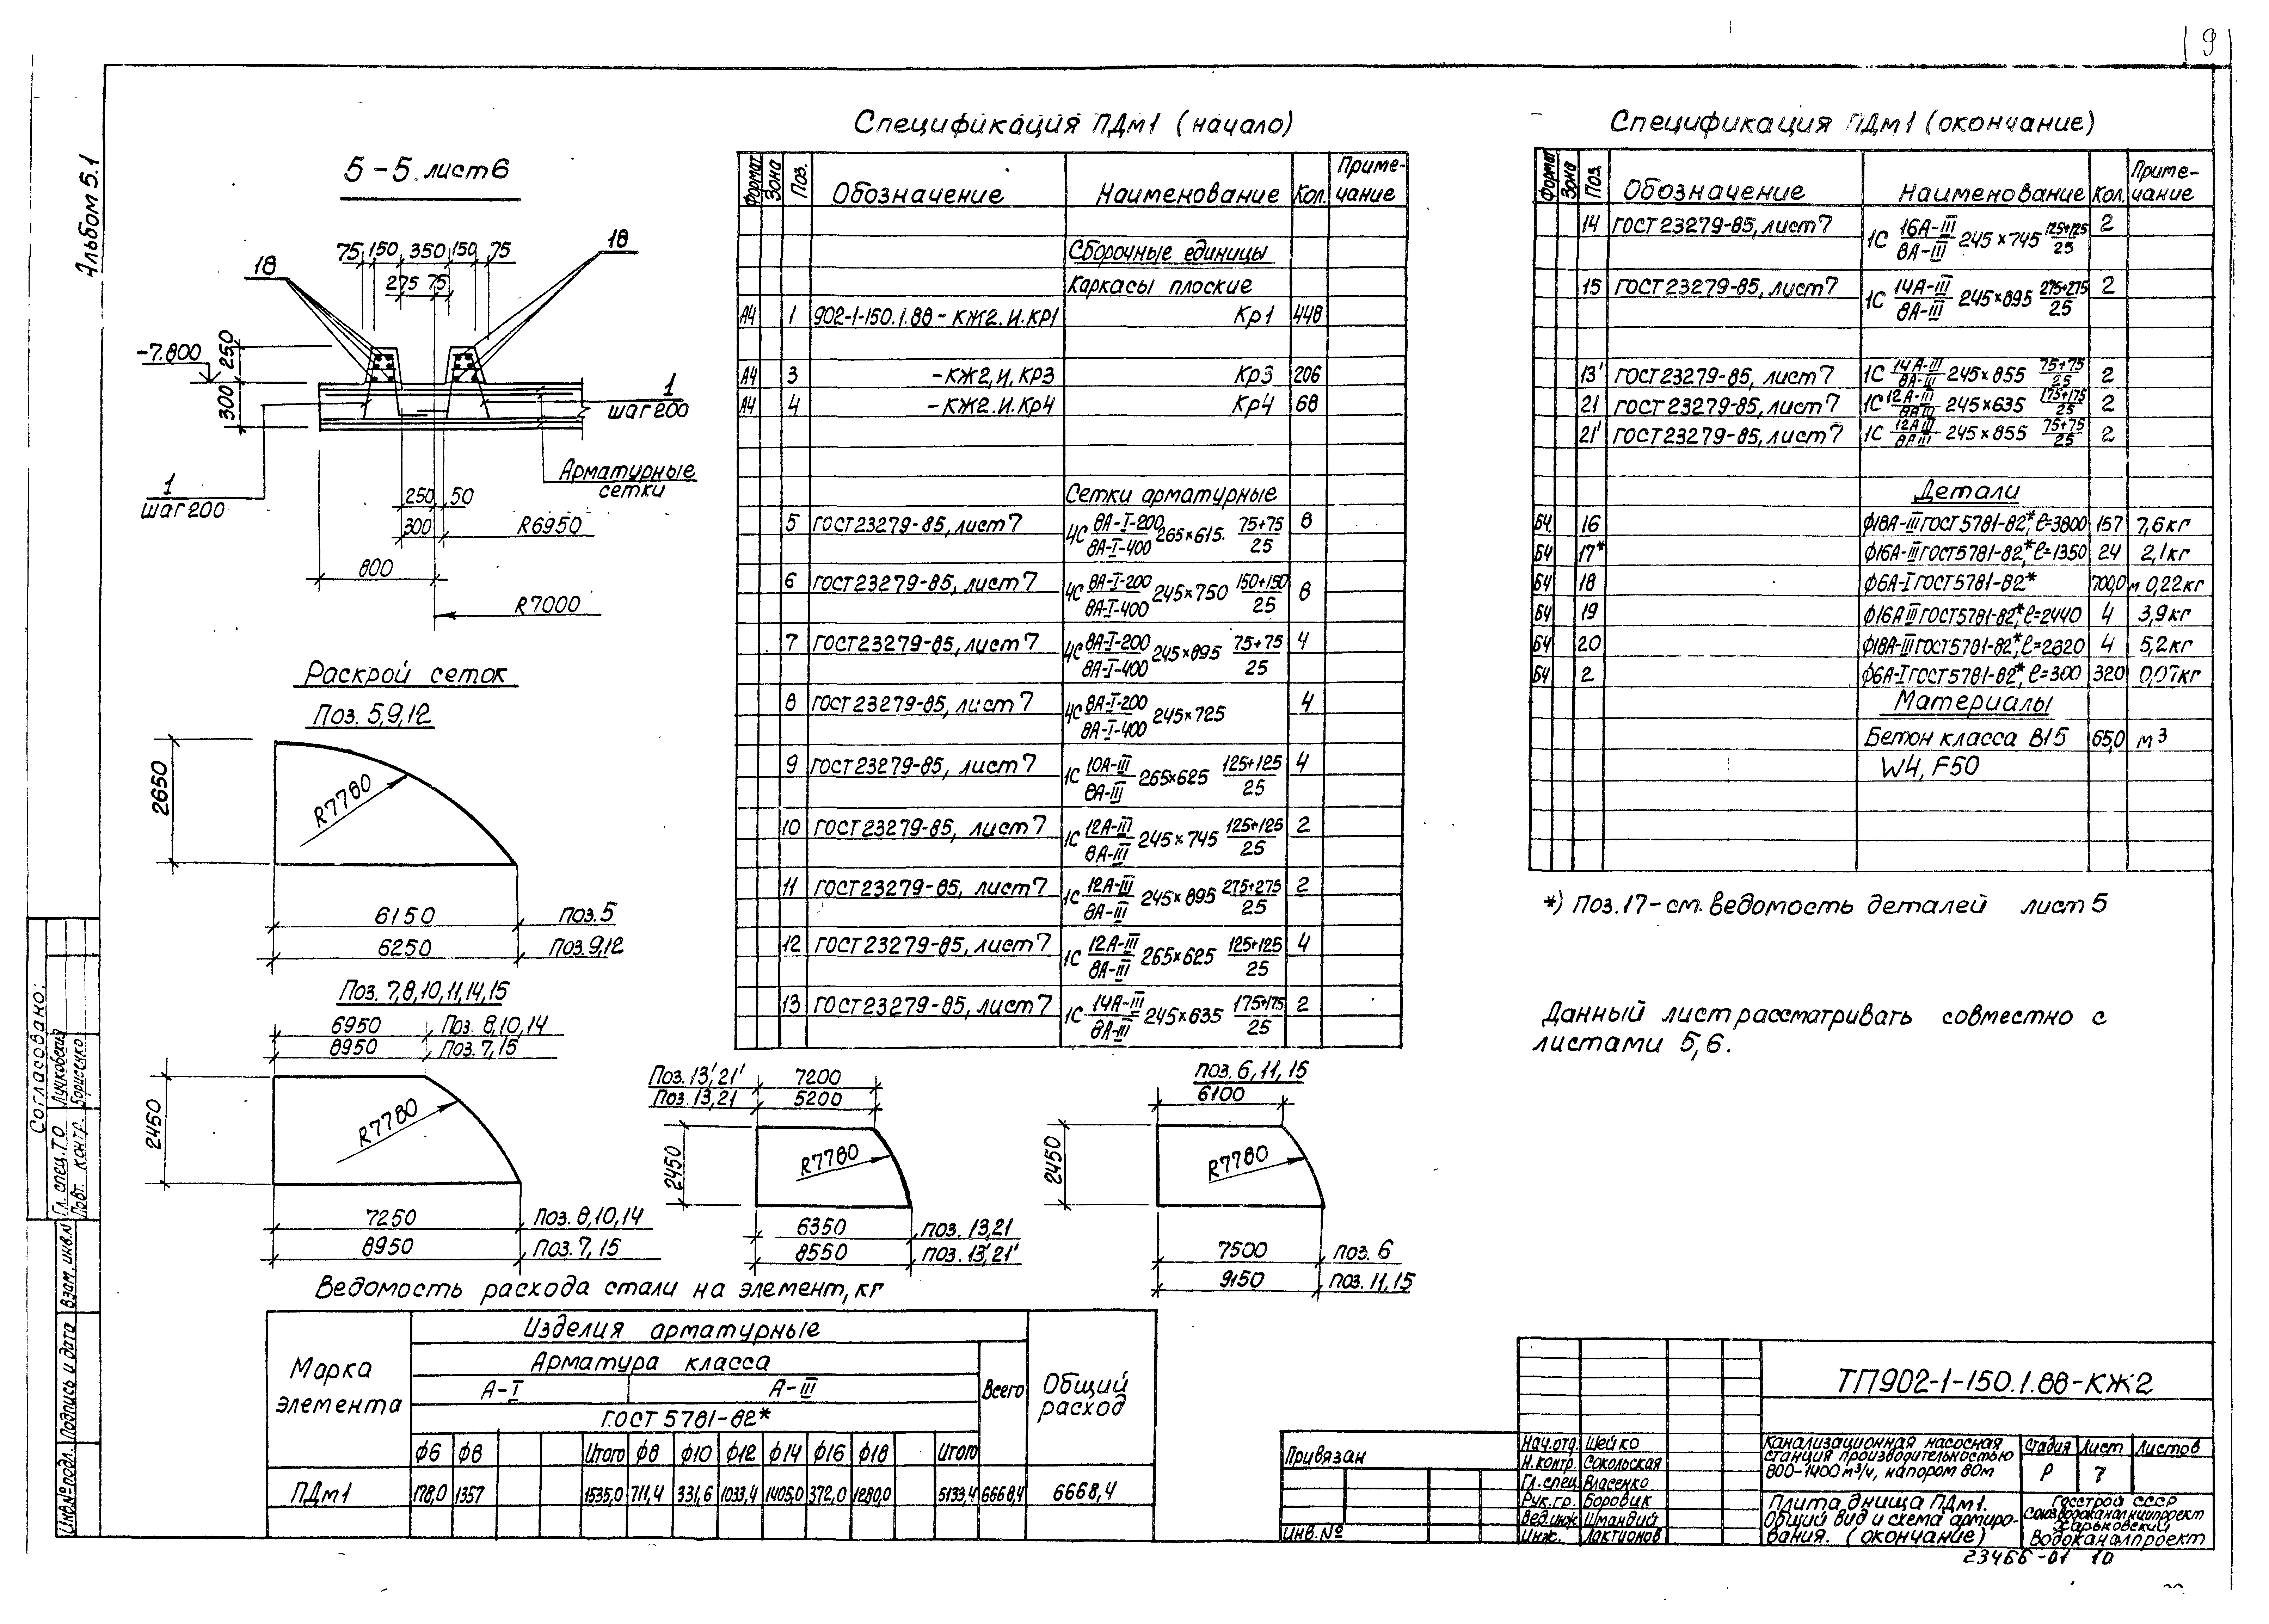 9
Альбом 5.1
5-5 лист 6
75 150 350 150 75
275 75
18
18
-7.800
250
300
1
шаг 200
1
шаг 200
Арматурные
сетки
250 50
300
R6950
800
R7000
Раскрой сеток
Поз. 5,9,12
2650
R7780
6150 поз.5
6250 поз.9,12
Поз. 7,8,10,11,14,15
6950 Поз. 8,10,14
8950 Поз. 7,15
2450
R7780
7250 поз. 8,10,14
8950 поз. 7,15
Поз. 13',21' 7200
Поз. 13,21 5200
2450
R7780
6350 поз. 13,21
8550 поз. 13',21'
поз. 6,11,15
6100
2450
R7780
7500 поз. 6
9150 поз. 11,15
Спецификация ПДм1 (начало)
Формат Зона Поз. Обозначение Наименование Кол. Приме-чание
Сборочные единицы
Каркасы плоские
А4 1 902-1-150.1.88-КЖ2.И.КР1 Кр1 448
А4 3 -КЖ2.И.КР3 Кр3 206
А4 4 -КЖ2.И.Кр4 Кр4 68
Сетки арматурные
5 ГОСТ 23279-85, лист 7 4С 8А-I-200/8А-I-400 265×615 75+75/25 8
6 ГОСТ 23279-85, лист 7 4С 8А-I-200/8А-I-400 245×750 150+150/25 8
7 ГОСТ 23279-85, лист 7 4С 8А-I-200/8А-I-400 245×895 75+75/25 4
8 ГОСТ 23279-85, лист 7 4С 8А-I-200/8А-I-400 245×725 4
9 ГОСТ 23279-85, лист 7 1С 10А-III/8А-III 265×625 125+125/25 4
10 ГОСТ 23279-85, лист 7 1С 12А-III/8А-III 245×745 125+125/25 2
11 ГОСТ 23279-85, лист 7 1С 12А-III/8А-III 245×895 275+275/25 2
12 ГОСТ 23279-85, лист 7 1С 12А-III/8А-III 265×625 125+125/25 4
13 ГОСТ 23279-85, лист 7 1С 14А-III/8А-III 245×635 175+175/25 2
Спецификация ПДм1 (окончание)
Формат Зона Поз. Обозначение Наименование Кол. Приме-чание
14 ГОСТ 23279-85, лист 7 1С 16А-III/8А-III 245×745 125+125/25 2
15 ГОСТ 23279-85, лист 7 1С 14А-III/8А-III 245×895 275+275/25 2
13' ГОСТ 23279-85, лист 7 1С 14А-III/8А-III 245×855 75+75/25 2
21 ГОСТ 23279-85, лист 7 1С 12А-III/8А III 245×635 175+175/25 2
21' ГОСТ 23279-85, лист 7 1С 12А III/8А III 245×855 75+75/25 2
Детали
БЧ 16 ф18А-III ГОСТ 5781-82*, ℓ=3800 157 7,6кг
БЧ 17* ф16А-III ГОСТ 5781-82*, ℓ=1350 24 2,1кг
БЧ 18 ф6А-I ГОСТ 5781-82* 700,0 м 0,22кг
БЧ 19 ф16А III ГОСТ 5781-82*, ℓ=2440 4 3,9кг
БЧ 20 ф18А-III ГОСТ 5781-82*, ℓ=2620 4 5,2кг
БЧ 2 ф6А-I ГОСТ 5781-82*, ℓ=300 320 0,07кг
Материалы
Бетон класса В15 65,0 м3
W4, F50
*) Поз. 17- см. ведомость деталей лист 5
Данный лист рассматривать совместно с
листами 5,6.
Ведомость расхода стали на элемент, кг
Марка элемента Изделия арматурные Общий расход
Арматура класса Всего
А-I А-III
ГОСТ 5781-82*
ф6 ф8 Итого ф8 ф10 ф12 ф14 ф16 ф18 Итого
ПДм1 178,0 1357 1535,0 711,4 331,6 1033,4 1405,0 372,0 1280,0 5133,4 6668,4 6668,4
Привязан
Инв.№
ТП902-1-150.1.88-КЖ2
Нач.отд. Шейко
Н.контр. Сокольская
Гл.спец. Власенко
Рук.гр. Боровик
Вед.инж. Шмандий
Инж. Лактионов
Канализационная насосная
станция производительностью
800-1400 м³/ч, напором 80м
Стадия Лист Листов
Р 7
Плита днища ПДм1.
Общий вид и схема армиро-
вания. (окончание)
Госстрой СССР
Союзводоканалниипроект
Харьковский
Водоканалпроект
23466-01 10
Согласовано:
Гл. спец. ТО Лучковская
Повт. контр. Борисенко
Инв.№подл. Подпись и дата Взам.инв.№